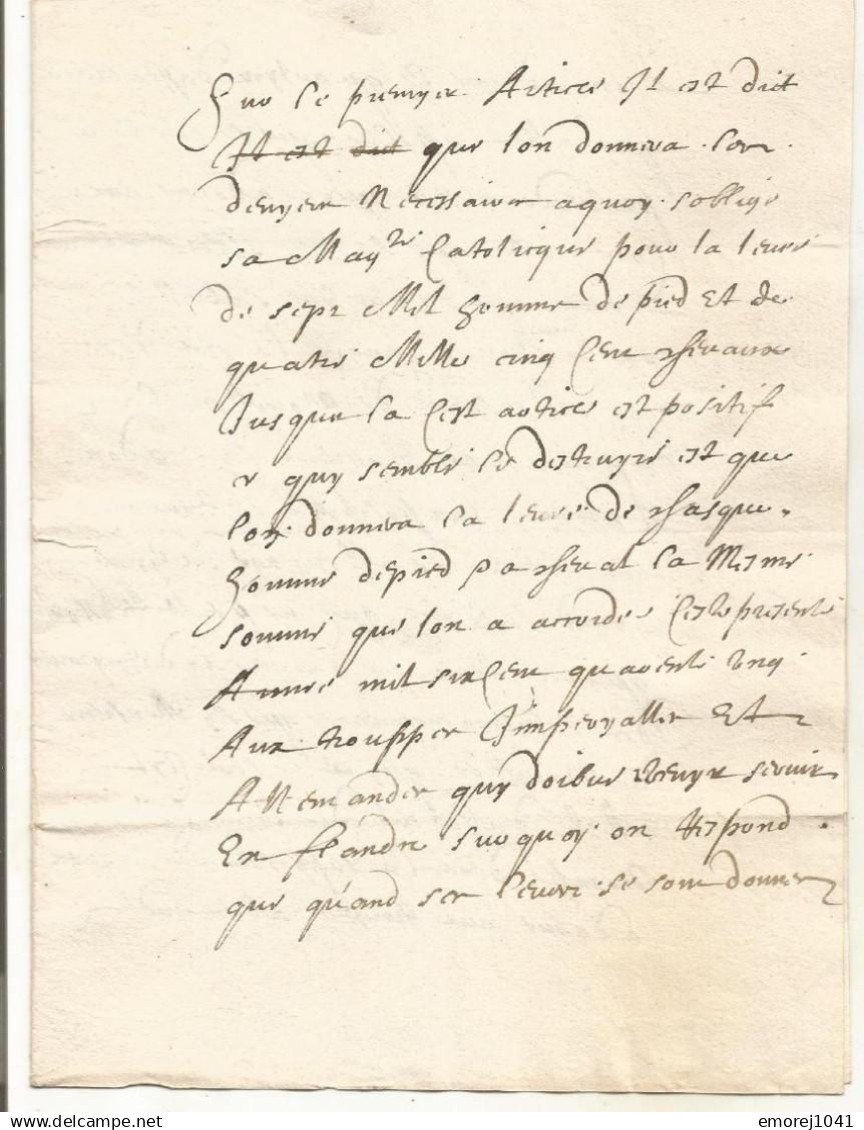 Sur le premyer Article Il est dict
Il est dict que lon donnera les
denyers Necessaires aquoy soblige
sa Mayte Catolicque pour la levee
de sept Mil hommes de pied Et de
quatre Mille cinq Cens chevaux
Jusques la Cest article est positif
quy semble le destruyre est que
lon donnera la levee de chasque
homme de pied a cheval la Mesme
somme que lon a accordee Ceste presente
Annee mil six Cens quarente ung
Aux trouppes Imperyalles Et
Allemandes quy doibvent venyr servir
En flandre sur quoy on respond
que quand ses levees se sont donnees
Delcampe.net
emorej1041